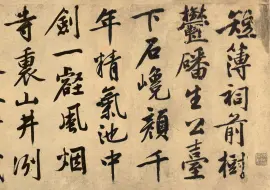 短簿祠前樹
鬱蟠生公臺
下石顏千
年精氣池中
劍一壑風烟
寺裏山井冽